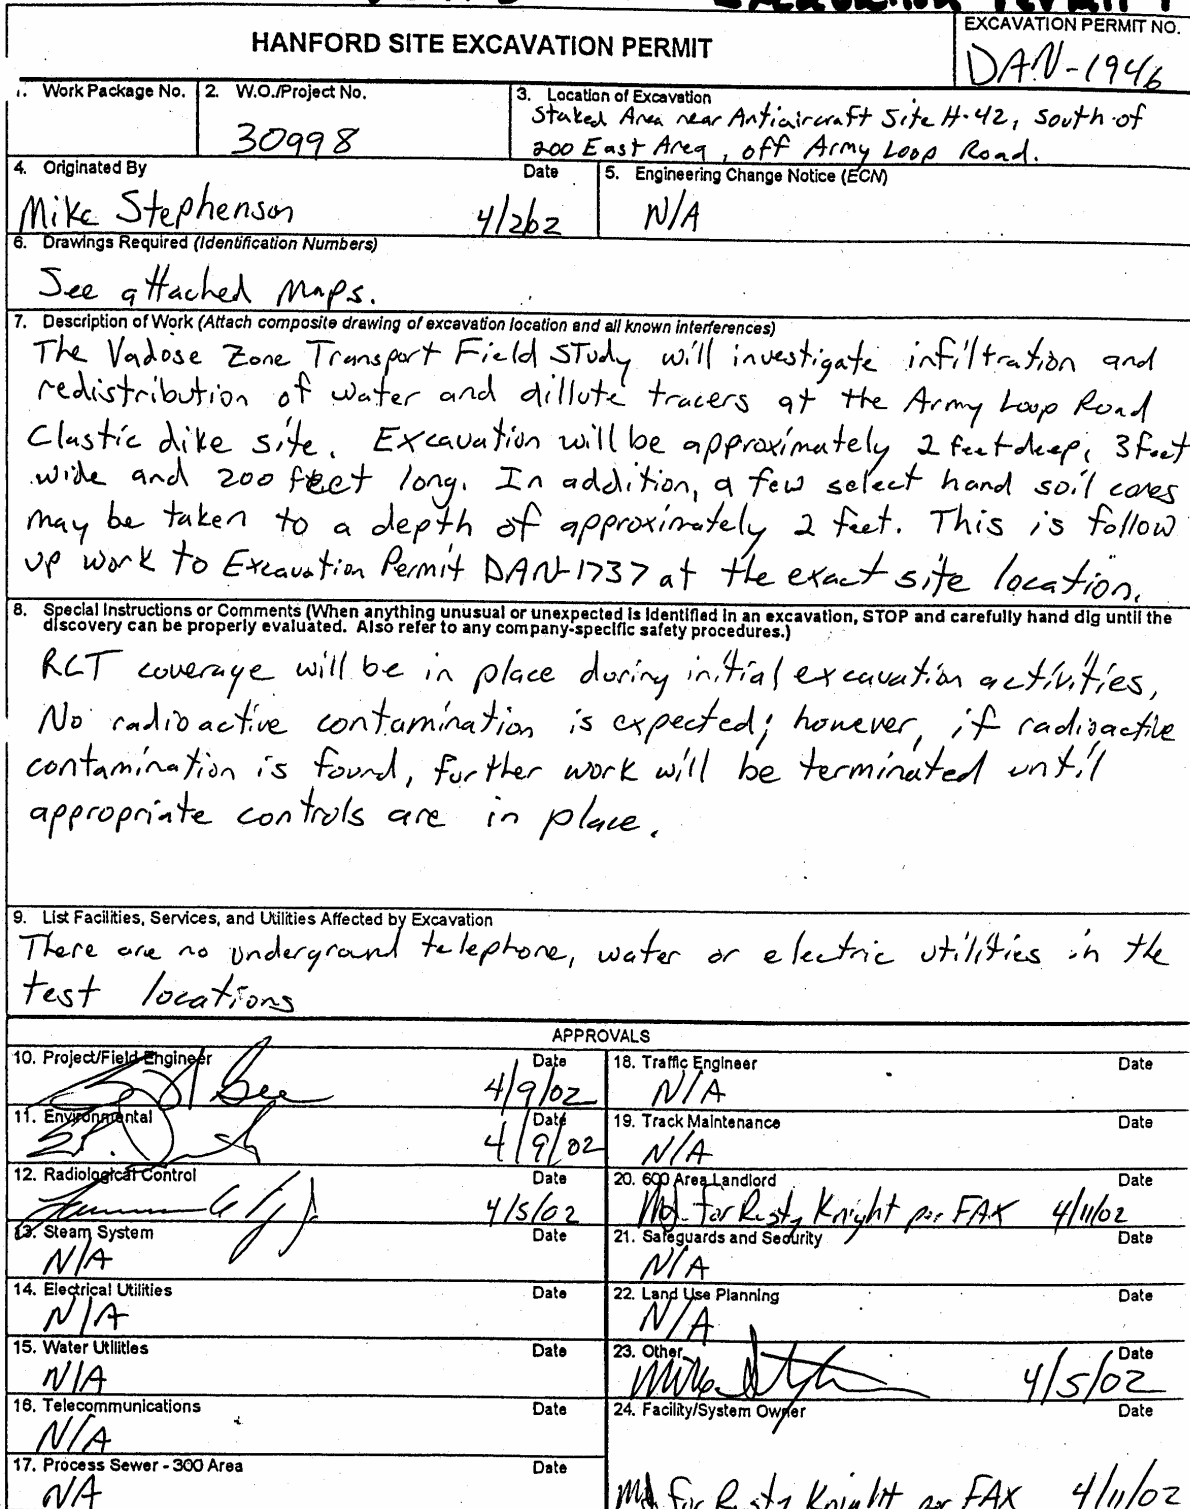 Excavation Permit
HANFORD SITE EXCAVATION PERMIT
EXCAVATION PERMIT NO.
DAN-1946
1. Work Package No.
2. W.O./Project No.
30998
3. Location of Excavation
Staked Area near Antiaircraft Site H-42, south of
200 East Area, off Army Loop Road.
4. Originated By Date
Mike Stephenson 4/2/02
5. Engineering Change Notice (ECN)
N/A
6. Drawings Required (Identification Numbers)
See attached Maps.
7. Description of Work (Attach composite drawing of excavation location and all known interferences)
The Vadose Zone Transport Field STudy will investigate infiltration and
redistribution of water and dillute tracers at the Army Loop Road
Clastic dike site. Excavation will be approximately 2 feet deep, 3 feet
wide and 200 feet long. In addition, a few select hand soil cores
may be taken to a depth of approximately 2 feet. This is follow
up work to Excavation Permit DAN-1737 at the exact site location.
8. Special Instructions or Comments (When anything unusual or unexpected is identified in an excavation, STOP and carefully hand dig until the
discovery can be properly evaluated. Also refer to any company-specific safety procedures.)
RCT coverage will be in place during initial excavation activities.
No radioactive contamination is expected; however, if radioactive
contamination is found, further work will be terminated until
appropriate controls are in place.
9. List Facilities, Services, and Utilities Affected by Excavation
There are no underground telephone, water or electric utilities in the
test locations
APPROVALS
10. Project/Field Engineer Date
4/9/02
11. Environmental Date
4/9/02
12. Radiological Control Date
4/5/02
13. Steam System Date
N/A
14. Electrical Utilities Date
N/A
15. Water Utilities Date
N/A
16. Telecommunications Date
N/A
17. Process Sewer - 300 Area Date
NA
18. Traffic Engineer Date
N/A
19. Track Maintenance Date
N/A
20. 600 Area Landlord Date
for Rusty Knight per FAX 4/11/02
21. Safeguards and Security Date
N/A
22. Land Use Planning Date
N/A
23. Other Date
4/5/02
24. Facility/System Owner Date
for Rusty Knight per FAX 4/11/02